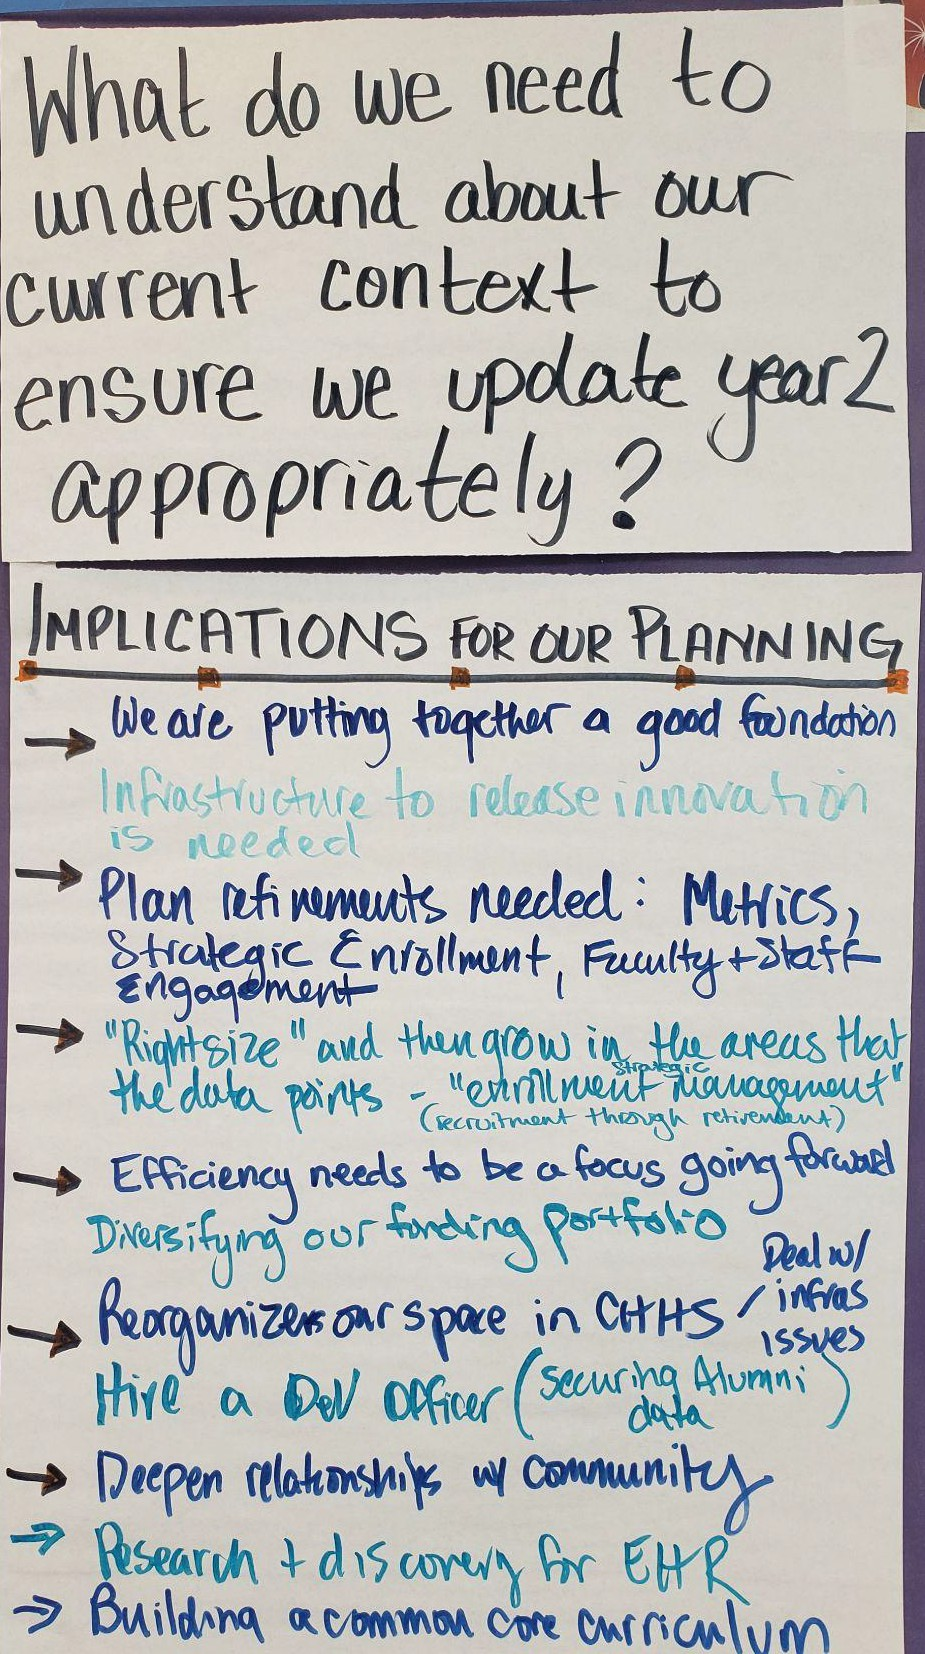 What do we need to
understand about our
current context to
ensure we update year 2
appropriately?
IMPLICATIONS FOR OUR PLANNING
→ We are putting together a good foundation
Infrastructure to release innovation
is needed
→ Plan refinements needed: Metrics,
Strategic Enrollment, Faculty + Staff
Engagement
→ "Rightsize" and then grow in the areas that
strategic
the data points - "enrollment management"
(recruitment through retirement)
→ Efficiency needs to be a focus going forward
Diversifying our funding portfolio
→ Reorganize our space in CHHS / Deal w/
infras
issues
Hire a Dev Officer (securing Alumni
data)
→ Deepen relationships w/ community
→ Research + discovery for EHR
→ Building a common core curriculum